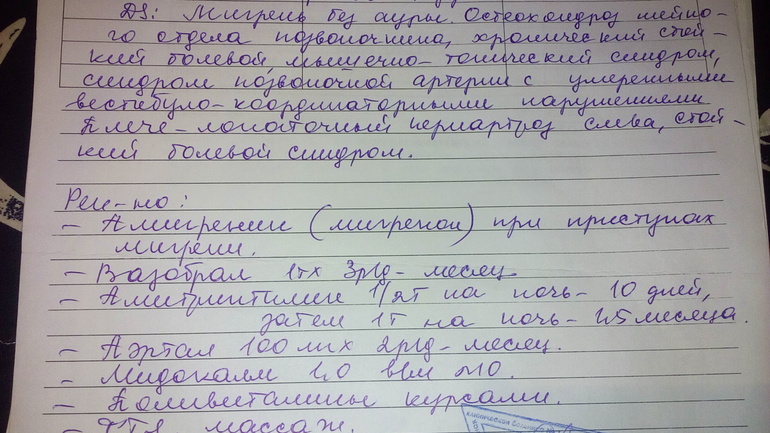 DS: Мигрень без ауры. Остеохондроз шейно-
го отдела позвоночника, хронический стой-
кий болевой мышечно-тонический синдром,
синдром позвоночной артерии с умеренными
вестибуло-координаторными нарушениями
Плече-лопаточный периартроз слева, стой-
кий болевой синдром.
Рек-но:
- Амигренин (мигрепам) при приступах
мигрени.
- Вазобрал 1т х 3р/д - месяц
- Амитриптилин 1/2т на ночь - 10 дней,
затем 1т на ночь - 1,5 месяца.
- Аэртал 100 мг х 2р/д - месяц.
- Мидокалм 1,0 в/м №10.
- Поливитамины курсами.
- ФТЛ, массаж.
клиническая больница